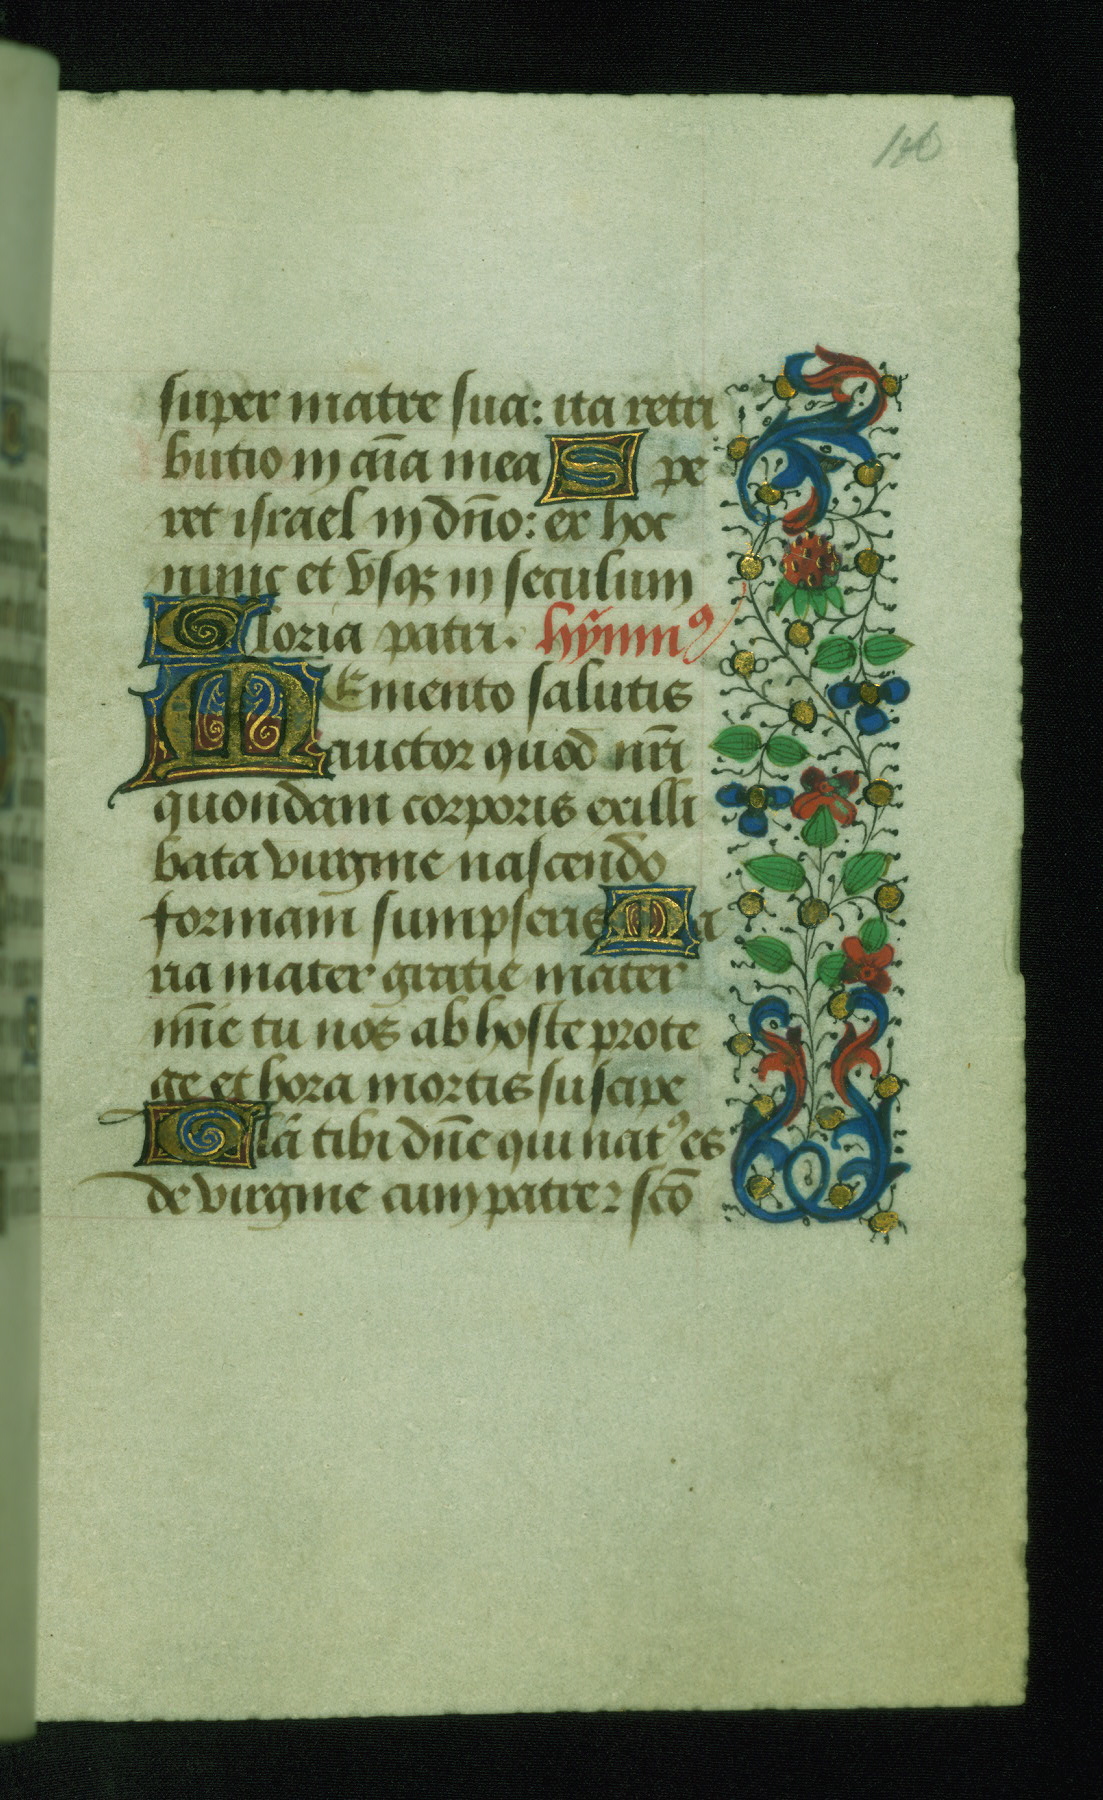 super matre sua: ita retri
butio in aīa mea Spe
ret israel in dn̄o: ex hoc
nunc et vsq3 in seculum
Gloria patri. hȳmnꝰ
Memento salutis
auctor quod nr̄i
quondam corporis ex illi
bata virgine nascendo
formam sumpseris Ma
ria mater gratie mater
mīe tu nos ab hoste prote
ge et hora mortis suscipe
Glā tibi dn̄e qui natꝰ es
de virgine cum patre ⁊ scō